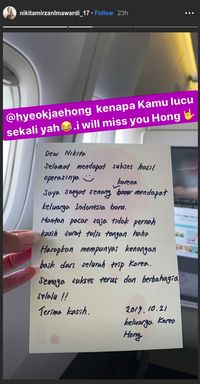 nikitamirzanimawardi_17 • Follow 23h
@hyeokjaehong kenapa Kamu lucu
sekali yah😂.i will miss you Hong🤟
Dear Nikita
Selamat mendapat sukses hasil
operasinya
Saya sangat senang karena mendapat
keluarga Indonesia baru.
Mantan pacar saja tidak pernah
kasih surat tulis tangan haha
Harapkan mempunyai kenangan
baik dari seluruh trip Korea.
Semoga sukses terus dan berbahagia
selalu !!
Terima kasih.
2019. 10. 21
keluarga Korea
Hong